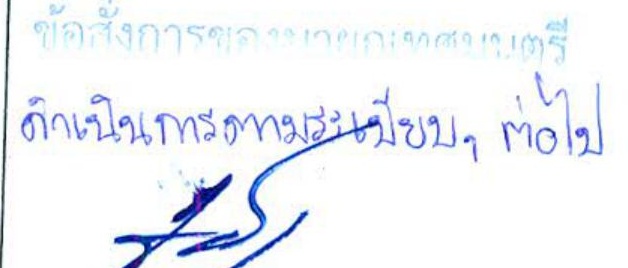 ข้อสั่งการของนายกเทศมนตรี
ดำเนินการตามระเบียบฯ ต่อไป